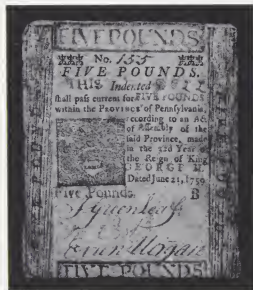 FIVE POUNDS
No. 155
FIVE POUNDS.
THIS Indented BILL
shall pass current for FIVE POUNDS
within the Province of Pennsylvania,
according to an Act
of Assembly of the
said Province, made
in the 32d Year of
the Reign of King
GEORGE II.
Dated June 21, 1759
Five Pounds. B
Greenleaf
Evan Morgan
FIVE POUNDS